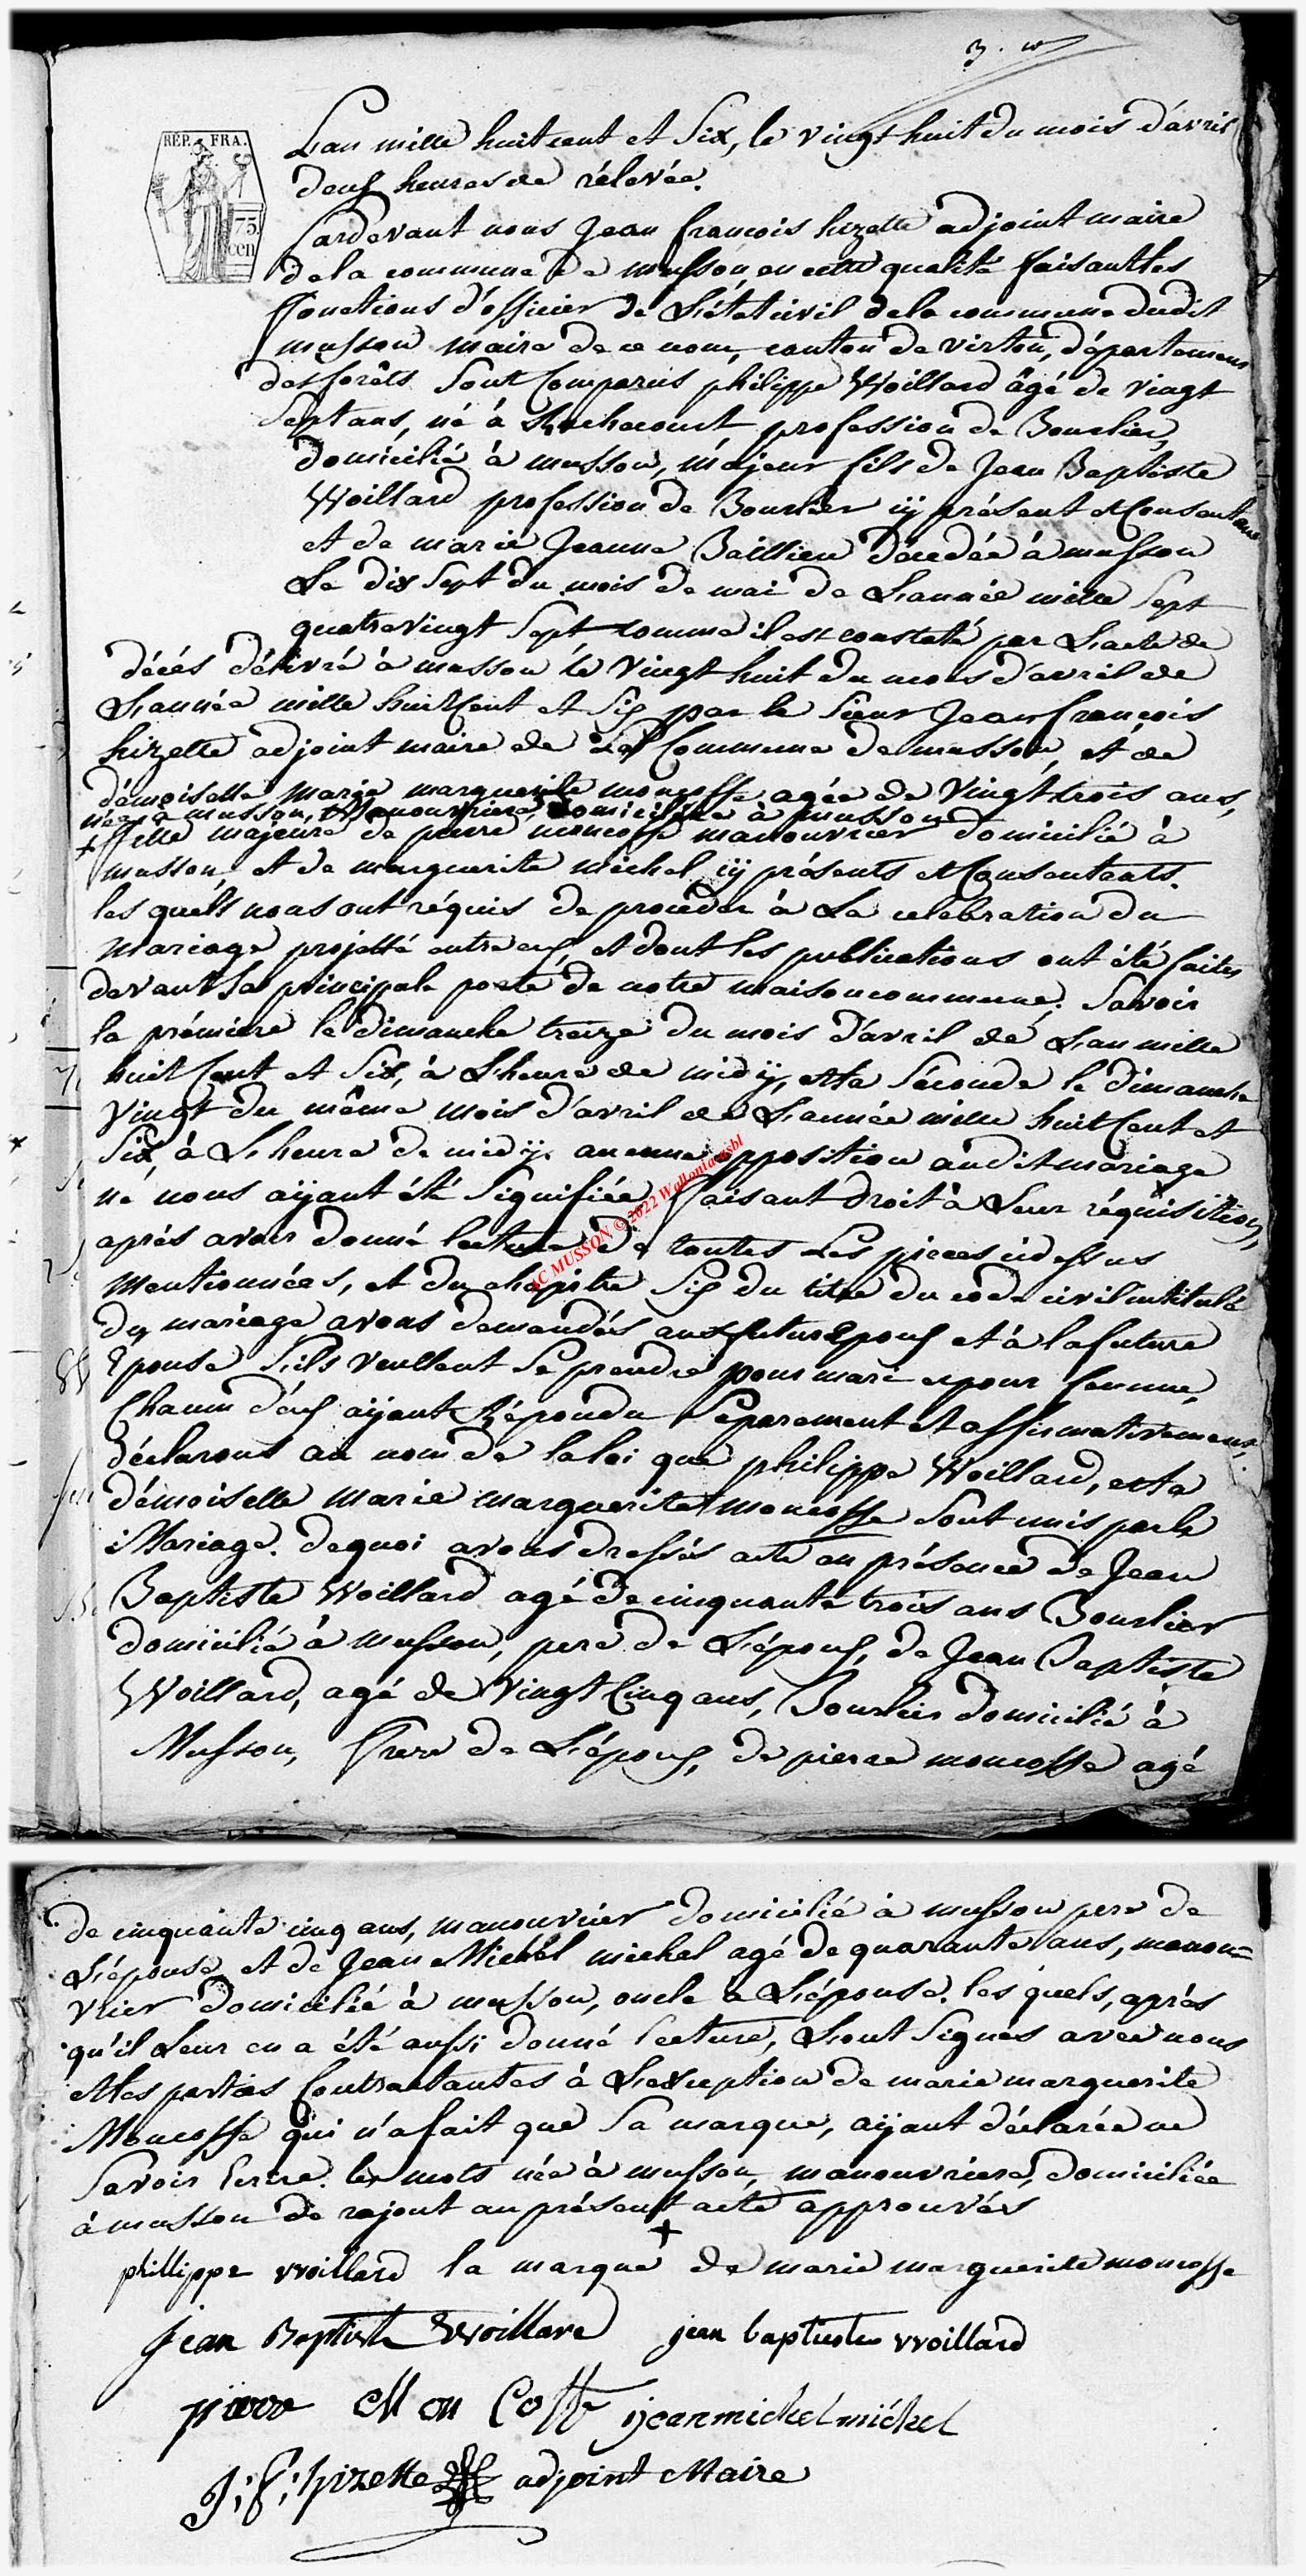 3.
RÉP. FRA.
75.
cen
L'an mille huit cent et six, le vingt huit du mois d'avril
deux heures de rélevée.
Pardevant nous Jean françois hizette adjoint maire
de la commune de musson en cette qualité faisant les
fonctions d'officier de L'état civil de la commune dudit
musson maire de ce nom, canton de virton, département
des forêts sont Comparus philippe Woillard âgé de vingt
sept ans, né à profession de Bourlier,
domicilié à musson, májeur fils de Jean Baptiste
Woillard profession de Bourlier iÿ présent et Consentant
et de marie Jeanne Baillieu décedée à musson
Le dix sept du mois de mai de L'année mille sept
quatrevingt sept comme il est constaté par L'acte de
décés délivré à musson le vingt huit du mois d'avril de
L'année mille huit Cent et six par le sieur Jean françois
hizette adjoint maire de La Commune de musson, et de
démoiselle marie marguerite moncosse agée de vingt trois ans,
née à musson, Manouvriere, domiciliée à musson
+ fille majeure de pierre moncosse manouvrier domicilié à
musson, et de marguerite michel, iÿ présents et Consentants.
les quels nous ont réquis de proceder à La celebration du
mariage projetté entre eux, et dont les publications ont été faites
devant la principale porte de notre maison commune. Savoir
la prémiere le dimanche treize du mois d'avril de L'an mille
huit Cent et six, à L'heure de midÿ, et la séconde le dimanche
vingt du même mois d'avril de L'année mille huit Cent et
six, à L'heure de midÿ. aucune opposition audit mariage
né nous aÿant été signifiée, faisant droit à Leur réquisition,
aprés avoir donné lecture de toutes Les pieces cidessus
mentionnées, et du chapitre six du titre du code civil intitulé
du mariage avons demandés aux futur Epoux et à la future
Epouse s'ils veullent se prendre pour mari et pour femme,
Chacun d'eux aÿant répondu séparement et affirmativement,
déclarons au nom de la loi que philippe Woillard, et la
démoiselle marie marguerite moncosse sont unis par le
Mariage. dequoi avons dressés acte en présence de Jean
Baptiste Woillard agé de cinquante trois ans Bourlier
domicilié à musson, pere de L'époux, de Jean Baptiste
Woillard, agé de vingt Cinq ans, Bourlier domicilié à
Musson, frere de L'époux, de pierre moncosse agé
de cinquante cinq ans, manouvrier domicilié à musson pere de
L'épouse, et de Jean Michel michel agé de quarante ans, manou=
vrier domicilié à musson, oncle a L'épouse. les quels, aprés
qu'il Leur en a été aussi donné lecture, L'ont signés avec nous
et les parties Contractantes à L'exception de marie marguerite
Moncosse qui n'a fait que sa marque, aÿant déclarée ne
savoir Ecrire. les mots née à musson, manouvriere, domiciliée
à musson de rajout au présent acte approuvés
phillippe woillard la marque + de marie marguerite moncosse
jean Baptiste Woillard jean baptiste woillard
pierre Mon Cosse jean michel michel
J: f: hizette adjoint Maire
AC MUSSON © 2022 Wallonia-asbl